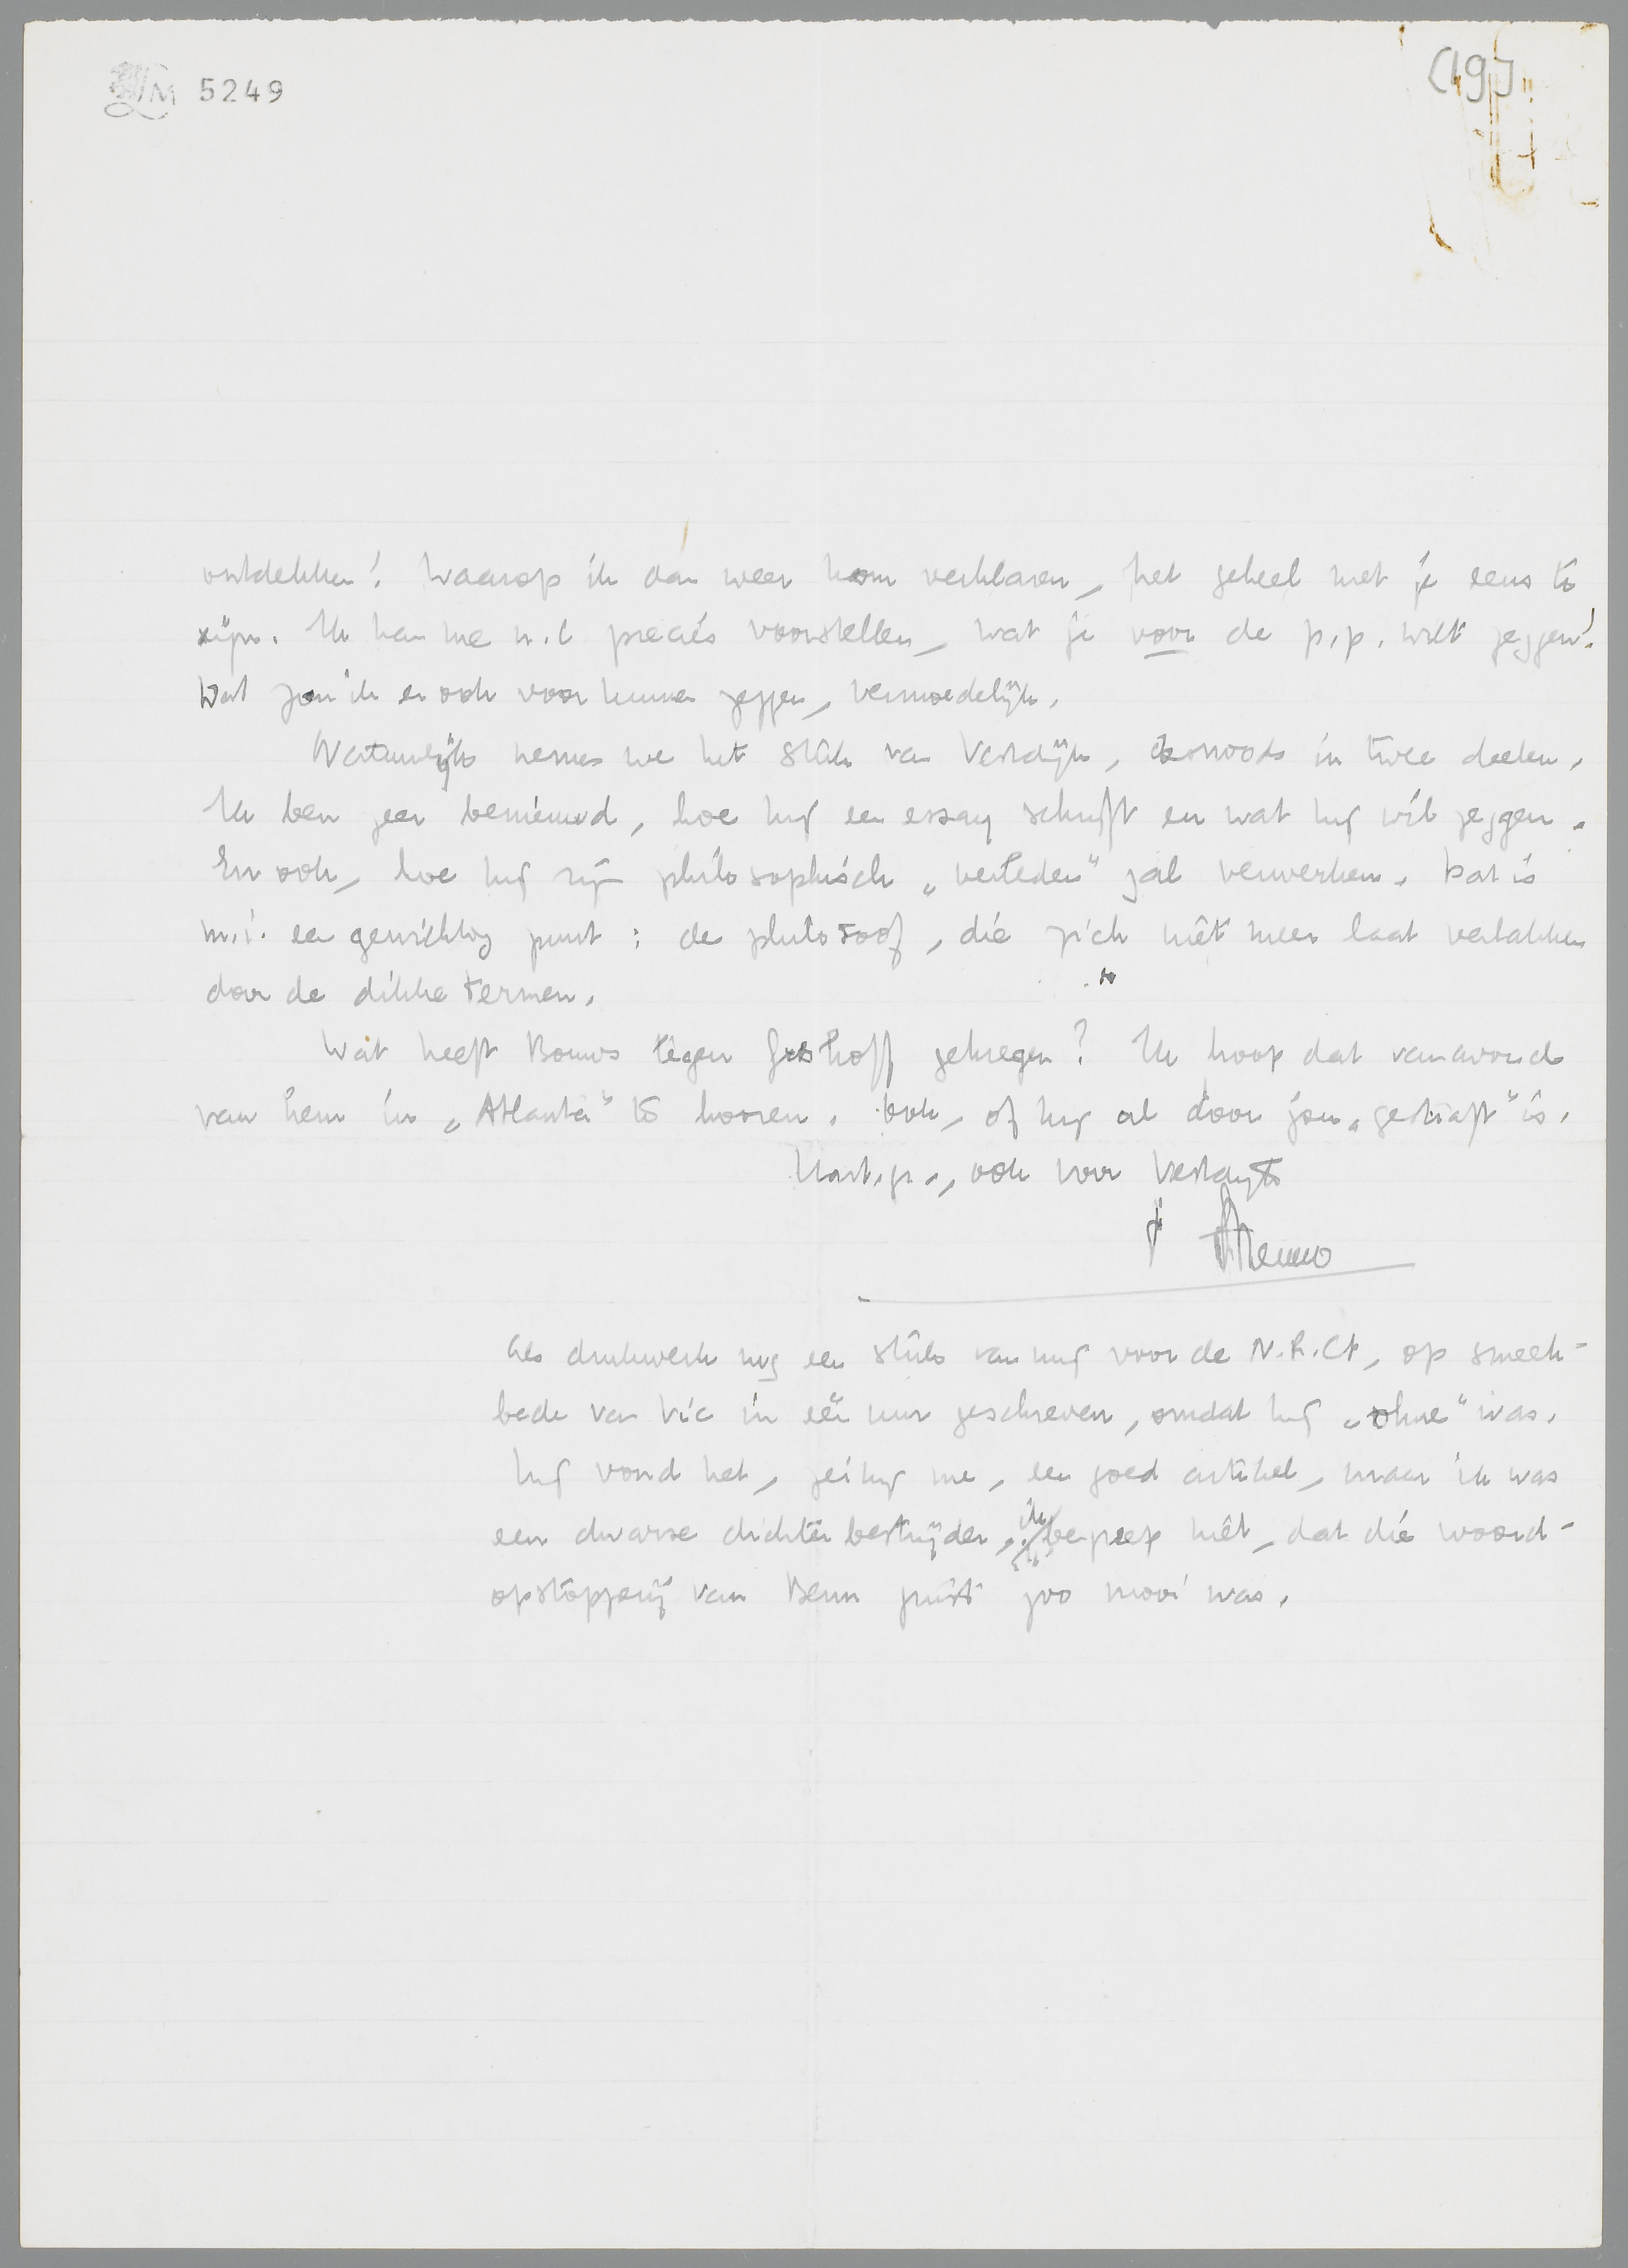 LM 5249
(19)
ontdekken! Waarop ik dan weer kom verklaren, het geheel met je eens te
zijn. Ik kan me n.l. precies voorstellen, wat je voor de p.p. wilt zeggen!
Dat zou ik er ook voor kunnen zeggen, vermoedelijk.
Natuurlijk nemen we het stuk van Vestdijk, desnoods in twee deelen.
Ik ben zeer benieuwd, hoe hij een essay schrijft en wat hij wil zeggen.
En ook, hoe hij zijn philosophisch „verleden” zal verwerken. Dat is
m.i. een gewichtig punt: de philosoof, die zich niet meer laat verlakken
door de dikke termen.
Wat heeft Bouws tegen Greshoff gekregen? Ik hoop dat vanavond
van hem in „Atlanta” te hooren. Ook, of hij al door jou „gestraft” is.
Hart. gr., ook voor Vestdijk
je Menno
Als drukwerk nog een stuk van mij voor de N.R.Ct, op smeek-
bede van Vic in één uur geschreven, omdat hij „ohne” was.
Hij vond het, zei hij me, een goed artikel, maar ik was
een dwarse dichterbestrijder, ik begreep niet, dat die woord-
opstopperij van Benn juist zoo mooi was.